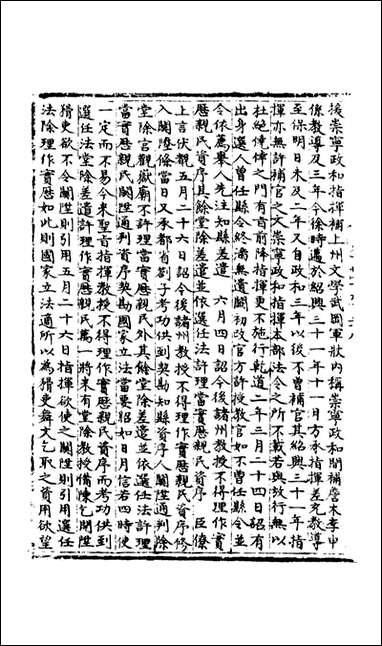 後崇寧政和指揮補上州文學武岡軍狀内稱崇寧政和間補詹木李申
係教導及三年今徐時邁於紹興三十一年十一日方承指揮差充教導
至保明日未及二年又自政和三年以後不曾補官其紹興三十一年指
揮亦無許補官之文崇寧政和指揮本部法令之所不載若與放行無以
杜絶僥倖之門有旨前降指揮更不施行乾道二年三月二十四日詔有
出身選人曽任縣令終滿無遺闕初改官方許授教官如不曽任縣令並
令依薦舉人先注知縣差遣　六月四日詔今後諸州教授不得理作實
歷親民資序其餘堂除差遣並依選任法許理當實歷親民資序　臣僚
上言伏覩五月二十六日詔今後諸州教授不得理作實歷親民資序修
入關陞條當日又承都省劄子考功供到契勘知縣資序人關陞通判除
堂除宫觀嶽廟不許理當實歷親民外其餘堂除差遣並依選任法許理
當實歷親民關陞通判資序契勘國家立法當要昭如日月信若四時使
一定而不易今來聖旨指揮教授不得理作實歷親民資序而考功供到
選任法堂除差遣許理作實歷親民萬一將來有堂除教授僑陳乞關陞
猾吏欲不令關陞則引用五月二十六日指揮欲使之關陞則引用選任
法除理作實歷如此則國家立法適所以為猾吏舞文乞取之資用欲望